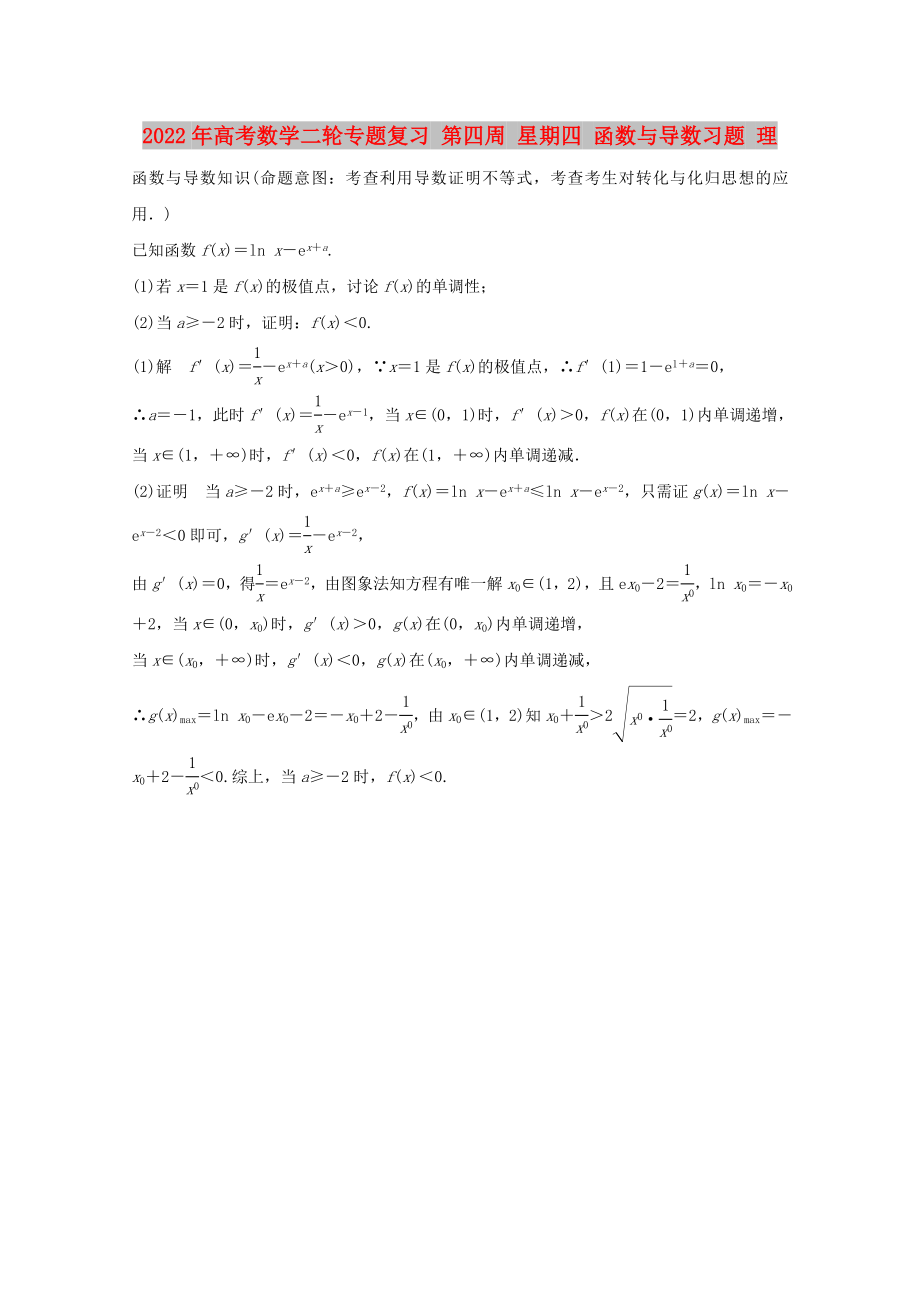 2022年高考数学二轮专题复习 第四周 星期四 函数与导数习题 理
函数与导数知识(命题意图：考查利用导数证明不等式，考查考生对转化与化归思想的应
用．)
已知函数 f(x)＝ln x－e^{x＋a}.
(1)若 x＝1 是 f(x)的极值点，讨论 f(x)的单调性；
(2)当 a≥－2 时，证明：f(x)＜0.
(1)解　f′(x)＝\frac{1}{x}－e^{x＋a}(x＞0)，∵x＝1 是 f(x)的极值点，∴f′(1)＝1－e^{1＋a}＝0，
∴a＝－1，此时 f′(x)＝\frac{1}{x}－e^{x－1}，当 x∈(0，1)时，f′(x)＞0，f(x)在(0，1)内单调递增，
当 x∈(1，＋∞)时，f′(x)＜0，f(x)在(1，＋∞)内单调递减．
(2)证明　当 a≥－2 时，e^{x＋a}≥e^{x－2}，f(x)＝ln x－e^{x＋a}≤ln x－e^{x－2}，只需证 g(x)＝ln x－
e^{x－2}＜0 即可，g′(x)＝\frac{1}{x}－e^{x－2}，
由 g′(x)＝0，得\frac{1}{x}＝e^{x－2}，由图象法知方程有唯一解 x_0∈(1，2)，且 ex_0－2＝\frac{1}{x_0}，ln x_0＝－x_0
＋2，当 x∈(0，x_0)时，g′(x)＞0，g(x)在(0，x_0)内单调递增，
当 x∈(x_0，＋∞)时，g′(x)＜0，g(x)在(x_0，＋∞)内单调递减，
∴g(x)_{max}＝ln x_0－ex_0－2＝－x_0＋2－\frac{1}{x_0}，由 x_0∈(1，2)知 x_0＋\frac{1}{x_0}＞2\sqrt{x_0·\frac{1}{x_0}}＝2，g(x)_{max}＝－
x_0＋2－\frac{1}{x_0}＜0.综上，当 a≥－2 时，f(x)＜0.